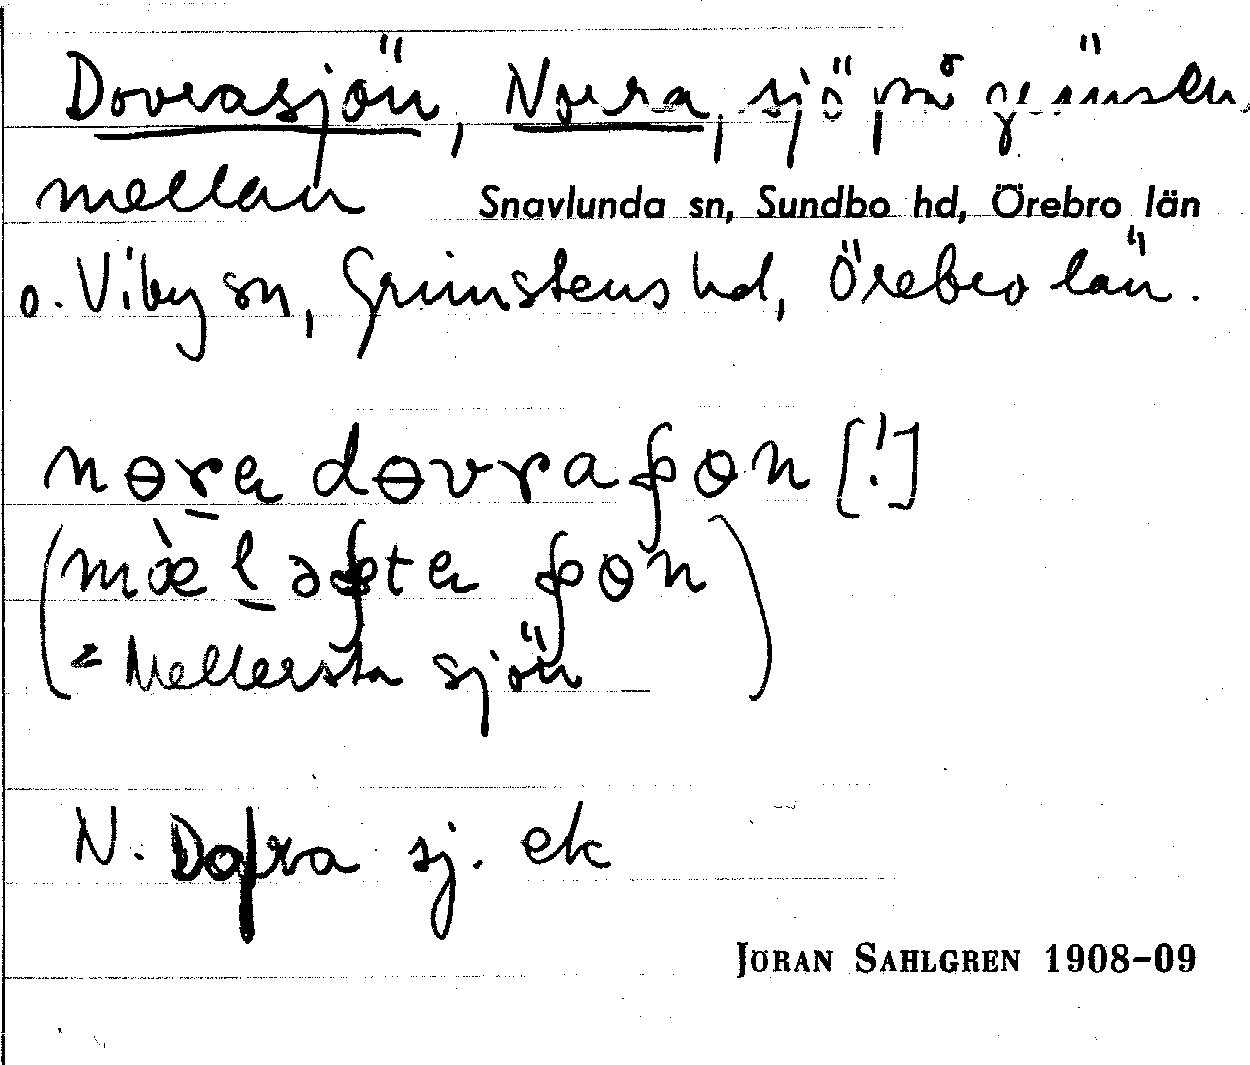 Dovrasjön, Norra, sjö på gränsen
mellan Snavlunda sn, Sundbo hd, Örebro län
o. Viby sn, Grimstens hd, Örebro län.
nɵra dɵvraʃɵn [!]
(mæ̀l əʃta ʃɵn
= Mellersta sjön)
N. Dofra sj. ek
JÖRAN SAHLGREN 1908-09